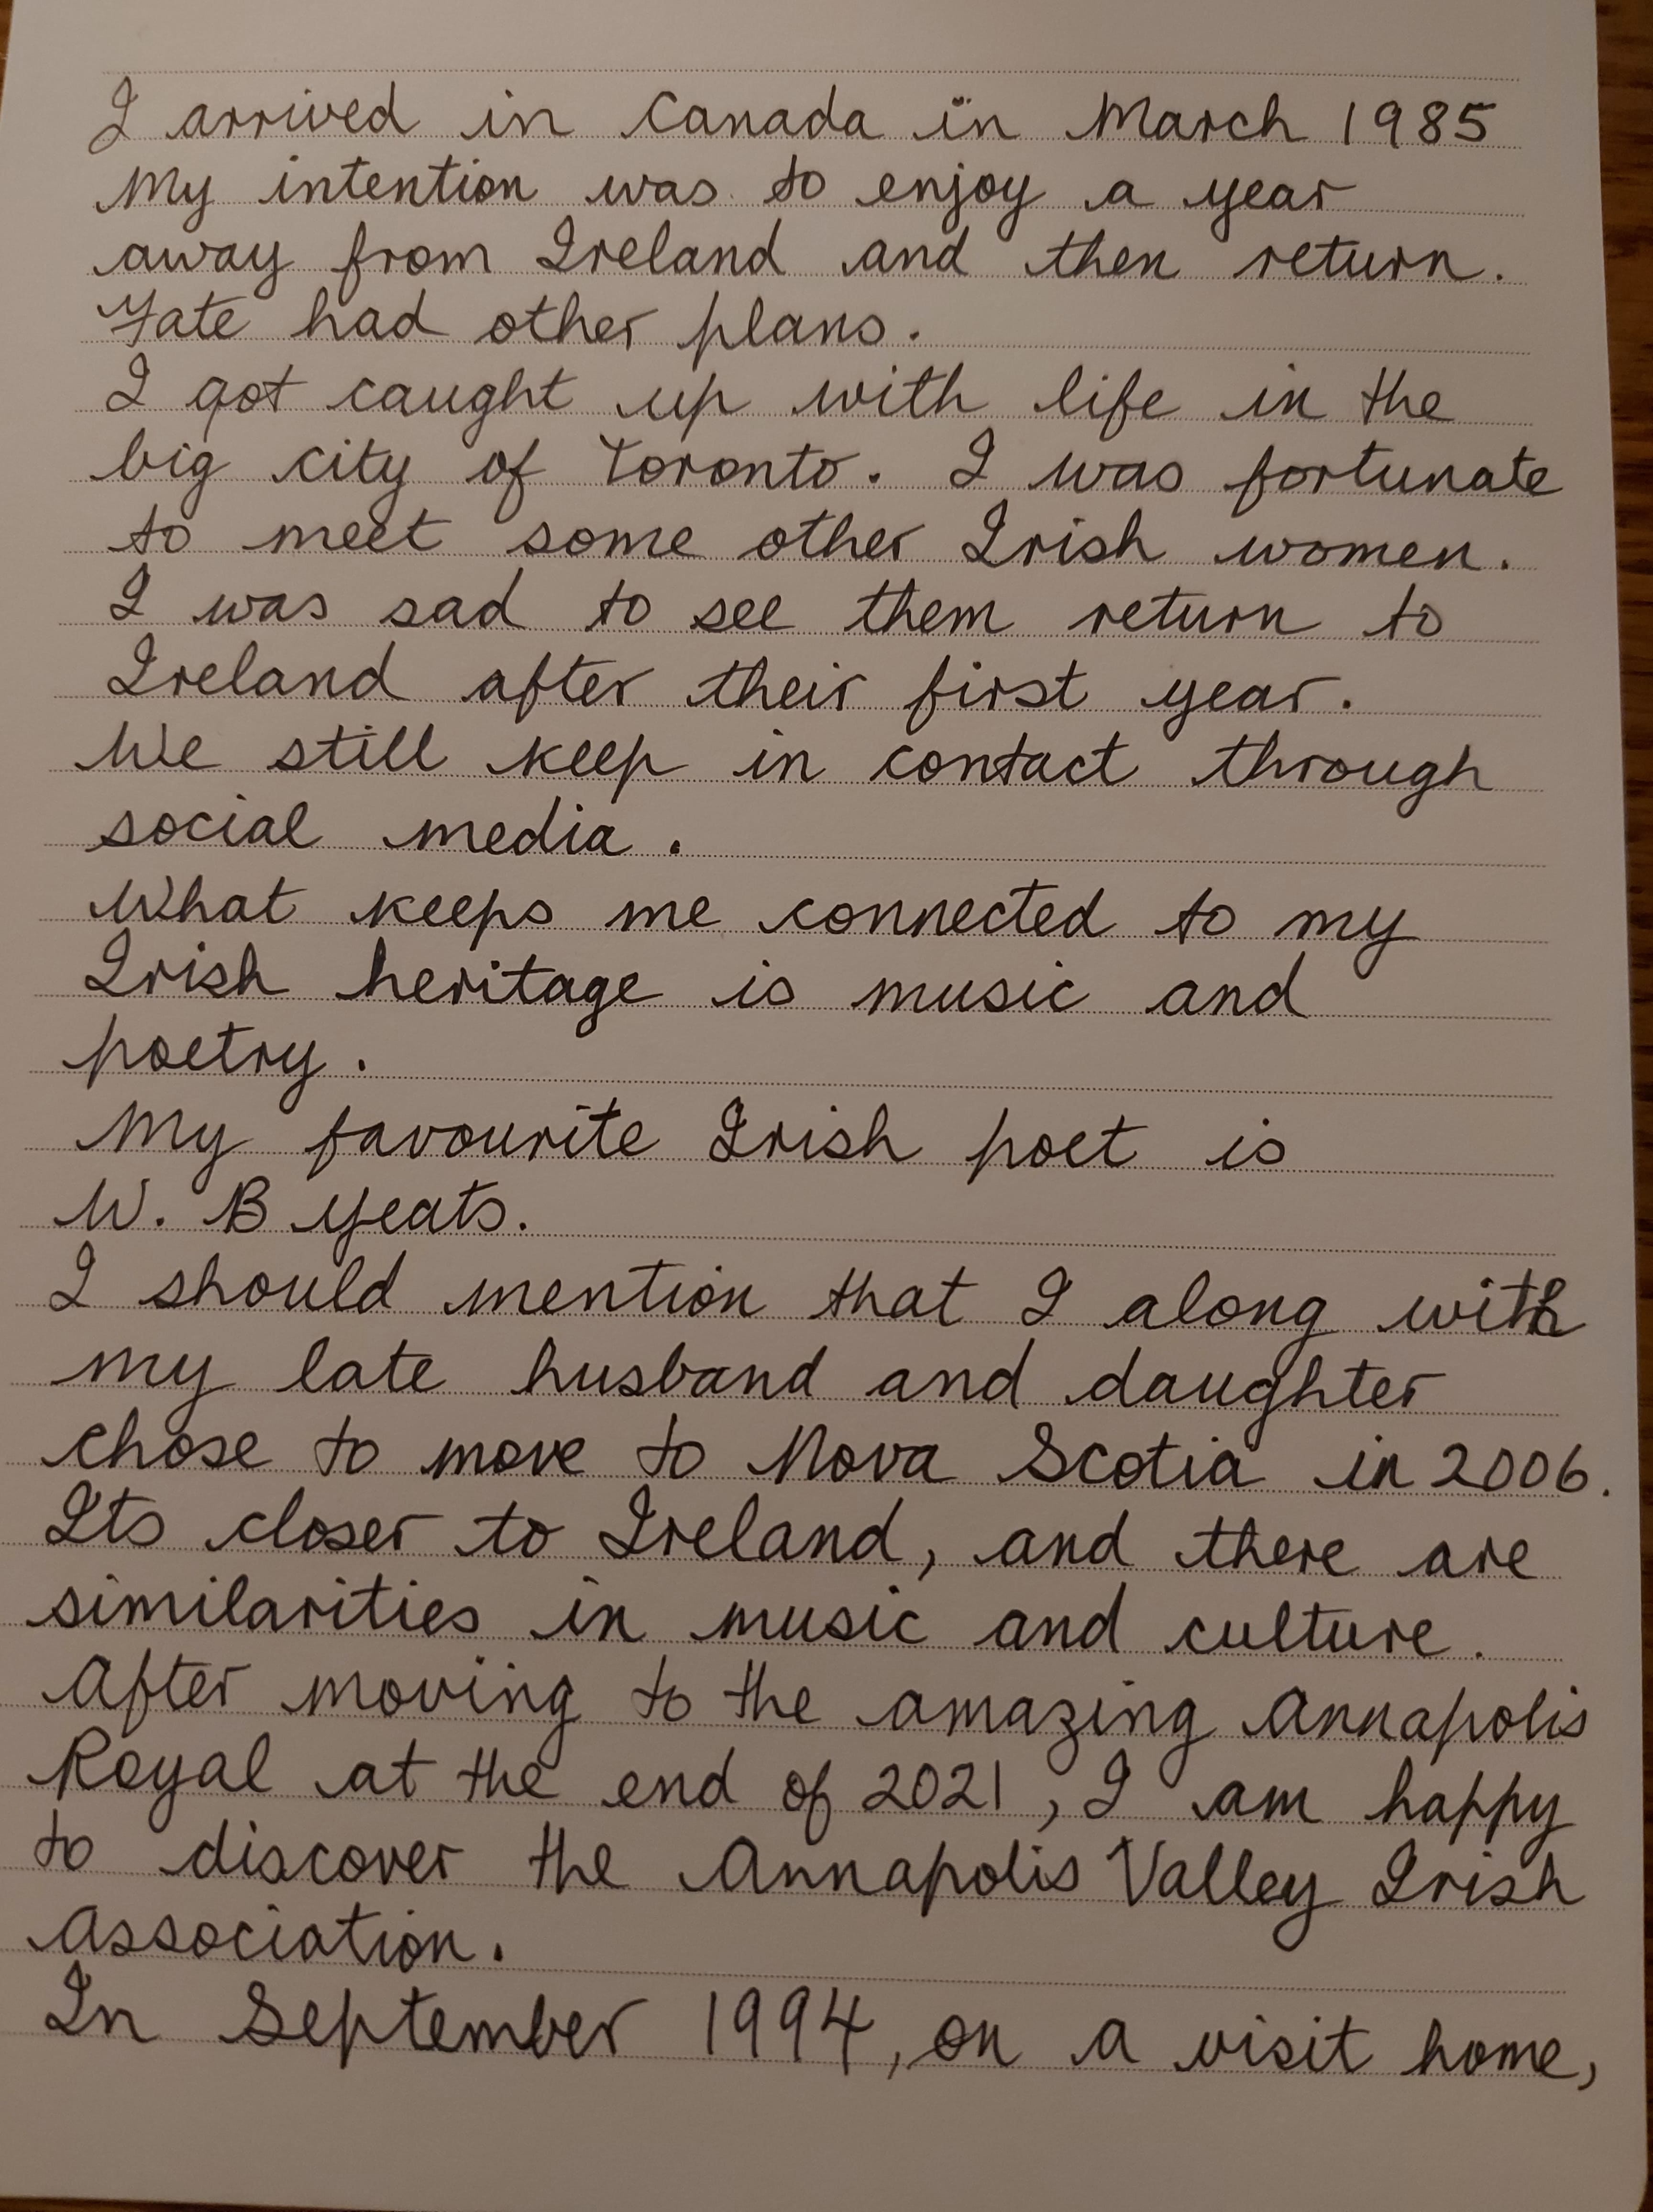 I arrived in Canada in March 1985
My intention was to enjoy a year
away from Ireland and then return.
Fate had other plans.
I got caught up with life in the
big city of Toronto. I was fortunate
to meet some other Irish women.
I was sad to see them return to
Ireland after their first year.
We still keep in contact through
social media.
What keeps me connected to my
Irish heritage is music and
poetry.
My favourite Irish poet is
W. B Yeats.
I should mention that I along with
my late husband and daughter
chose to move to Nova Scotia in 2006.
Its closer to Ireland, and there are
similarities in music and culture.
After moving to the amazing Annapolis
Royal at the end of 2021, I am happy
to discover the Annapolis Valley Irish
Association.
In September 1994, on a visit home,